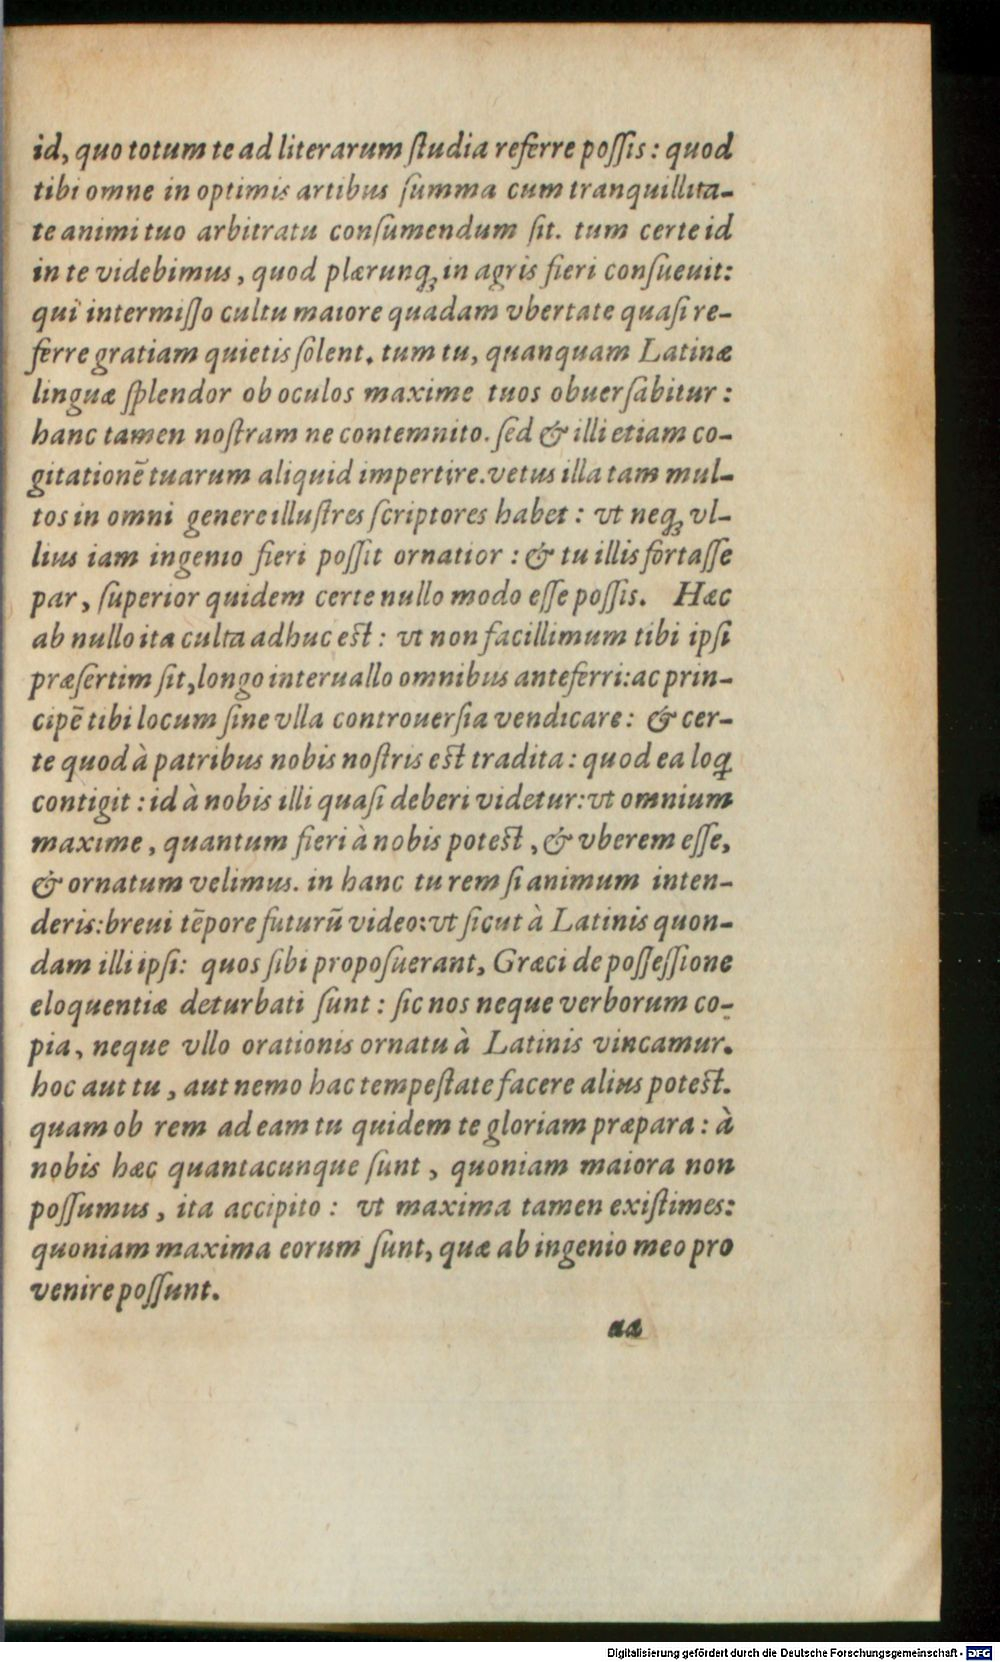 id, quo totum te ad literarum ſtudia referre poſſis: quod
tibi omne in optimis artibus ſumma cum tranquillita-
te animi tuo arbitratu conſumendum ſit. tum certe id
in te videbimus, quod plærunqꝫ in agris fieri conſueuit:
qui intermiſſo cultu maiore quadam vbertate quaſi re-
ferre gratiam quietis ſolent. tum tu, quanquam Latinæ
linguæ ſplendor ob oculos maxime tuos obuerſabitur:
hanc tamen noſtram ne contemnito. ſed & illi etiam co-
gitationē tuarum aliquid impertire. vetus illa tam mul-
tos in omni genere illuſtres ſcriptores habet: vt neqꝫ vl-
lius iam ingenio fieri poſſit ornatior: & tu illis fortaſſe
par, ſuperior quidem certe nullo modo eſſe poſſis. Hæc
ab nullo ita culta adhuc eſt: vt non facillimum tibi ipſi
præſertim ſit, longo interuallo omnibus anteferri: ac prin-
cipē tibi locum ſine vlla controuerſia vendicare: & cer-
te quod à patribus nobis noſtris eſt tradita: quod ea loꝗ
contigit: id à nobis illi quaſi deberi videtur: vt omnium
maxime, quantum fieri à nobis poteſt, & vberem eſſe,
& ornatum velimus. in hanc tu rem ſi animum inten-
deris: breui tēpore futurū video: vt ſicut à Latinis quon-
dam illi ipſi: quos ſibi propoſuerant, Græci de poſſeſſione
eloquentiæ deturbati ſunt: ſic nos neque verborum co-
pia, neque vllo orationis ornatu à Latinis vincamur.
hoc aut tu, aut nemo hac tempeſtate facere alius poteſt.
quam ob rem ad eam tu quidem te gloriam præpara: à
nobis hæc quantacunque ſunt, quoniam maiora non
poſſumus, ita accipito: vt maxima tamen exiſtimes:
quoniam maxima eorum ſunt, quæ ab ingenio meo pro
venire poſſunt.
aa
Digitalisierung gefördert durch die Deutsche Forschungsgemeinschaft - DFG